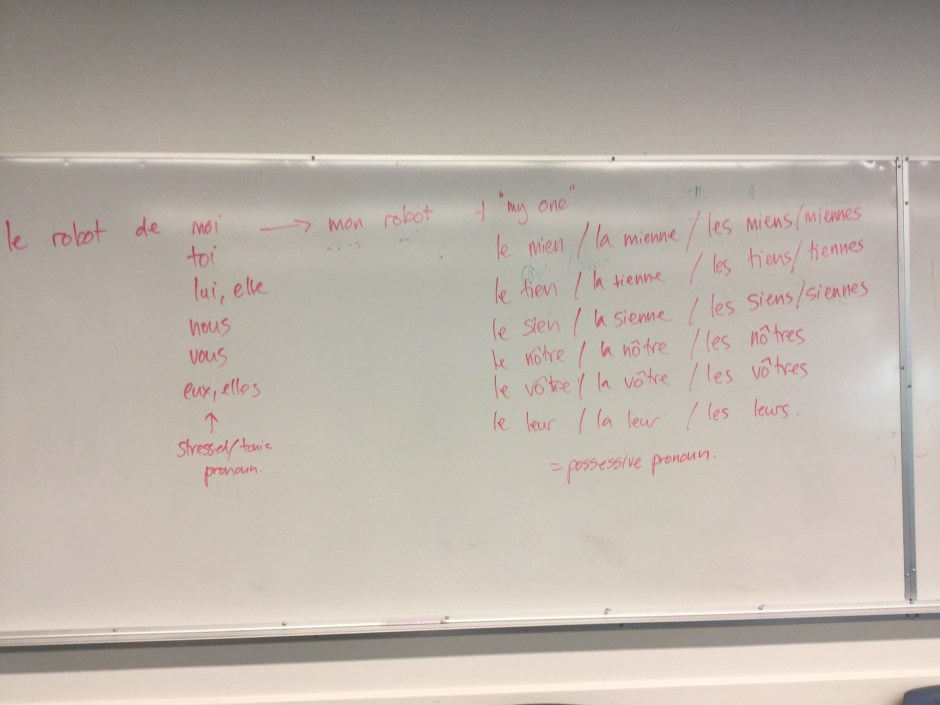 le robot de moi → mon robot + "my one"
toi
lui, elle
nous
vous
eux, elles
↑
stressed/tonic
pronoun.
le mien / la mienne / les miens/miennes
le tien / la tienne / les tiens/tiennes
le sien / la sienne / les siens/siennes
le nôtre / la nôtre / les nôtres
le vôtre / la vôtre / les vôtres
le leur / la leur / les leurs.
= possessive pronoun.